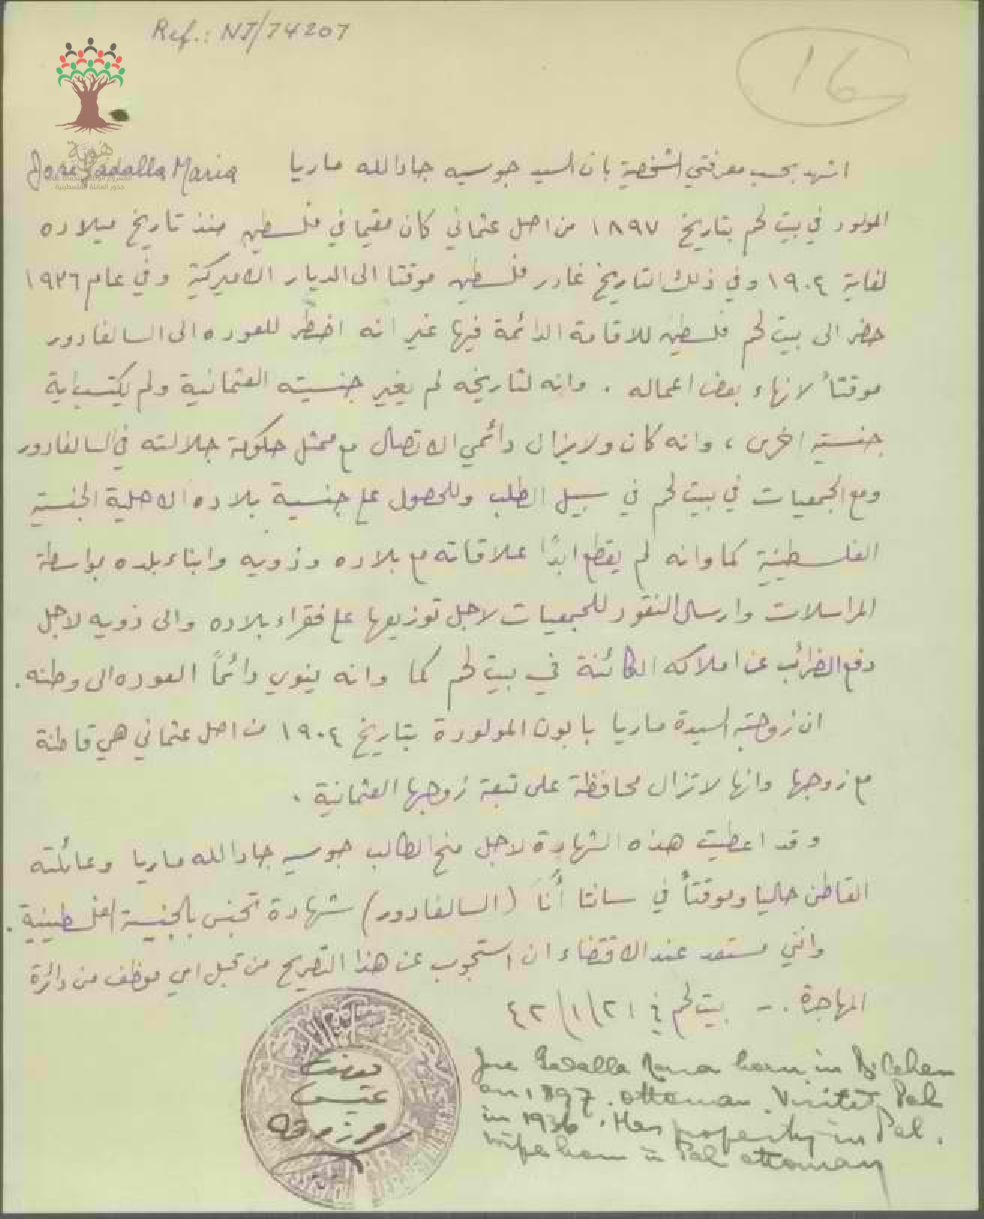 Ref.: NJ/74207
16
هوية
اشهد بحسب معرفتي الشخصية بان السيد جوسيه جادالله ماريا Jose Gadalla Maria
المولود في بيت لحم بتاريخ ١٨٩٧ من اصل عثماني كان مقيما في فلسطين منذ تاريخ ميلاده
لغاية ١٩٠٤ وفي ذلك التاريخ غادر فلسطين موقتا الى الديار الاميركية وفي عام ١٩٣٦
حضر الى بيت لحم فلسطين للاقامة الدائمة فيها غير انه اضطر للعوده الى السالفادور
موقتاً لانهاء بعض اعماله . وانه لتاريخه لم يغير جنسيته العثمانية ولم يكتسب اية
جنسية اخرى ، وانه كان ولايزال دائمي الاتصال مع ممثل حكومة جلالته في السالفادور
ومع الجمعيات في بيت لحم في سبيل الطلب وللحصول على جنسية بلاده الاصلية الجنسية
الفلسطينية كما وانه لم يقطع ابدًا علاقاته مع بلاده وذويه وابناء بلده بواسطة
المراسلات وارسال النقود للجمعيات لاجل توزيعها على فقراء بلاده والى ذويه لاجل
دفع الضرائب عن املاكه الكائنة في بيت لحم كما وانه ينوي دائماً العوده الى وطنه .
ان زوجته السيدة ماريا بابون المولودة بتاريخ ١٩٠٤ من اصل عثماني هي قاطنة
مع زوجها وانها لاتزال محافظة على تبعة زوجها العثمانية .
وقد اعطيت هذه الشهادة لاجل منح الطالب جوسيه جادالله ماريا وعائلته
القاطن حاليا وموقتاً في سانتا أنا (السالفادور) شهادة تجنس بالجنسية الفلسطينية .
وانني مستعد عند الاقتضاء ان استجوب عن هذا التصريح من قبل اي موظف من دائرة
المهاجرة . – بيت لحم في ٢١/١/٤٢
Jose Gadalla Maria born in B.lehem
on 1897. ottoman. Visited Pal
in 1936. Has property in Pal.
wife born in Pal ottoman